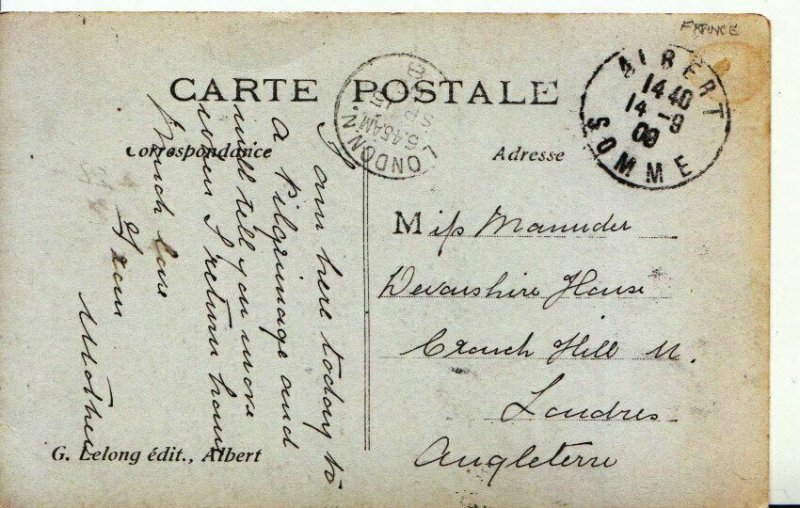 FRANCE
CARTE POSTALE
Correspondance
Adresse
ALBERT
1440
14-9
09
SOMME
LONDON. N.
5.45AM
SP 15
I am here today to
a Pilgrimage and
will tell you more
when I return home
Much love
From
Mother
Miss
Devonshire House
Crouch Hill N.
Londres
Angleterre
G. Lelong édit., Albert